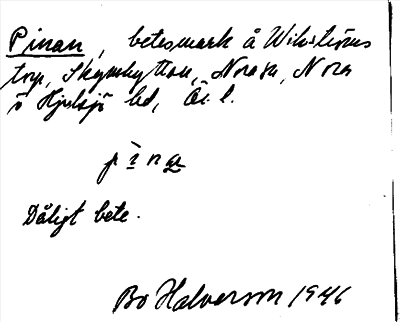 Pinan, betesmark å Wikströms
torp, Skymhyttan, Nora sn, Nora
o Hjulsjö bd, Ör. l.
pìnɑ
Dåligt bete.
Bo Halverson 1946